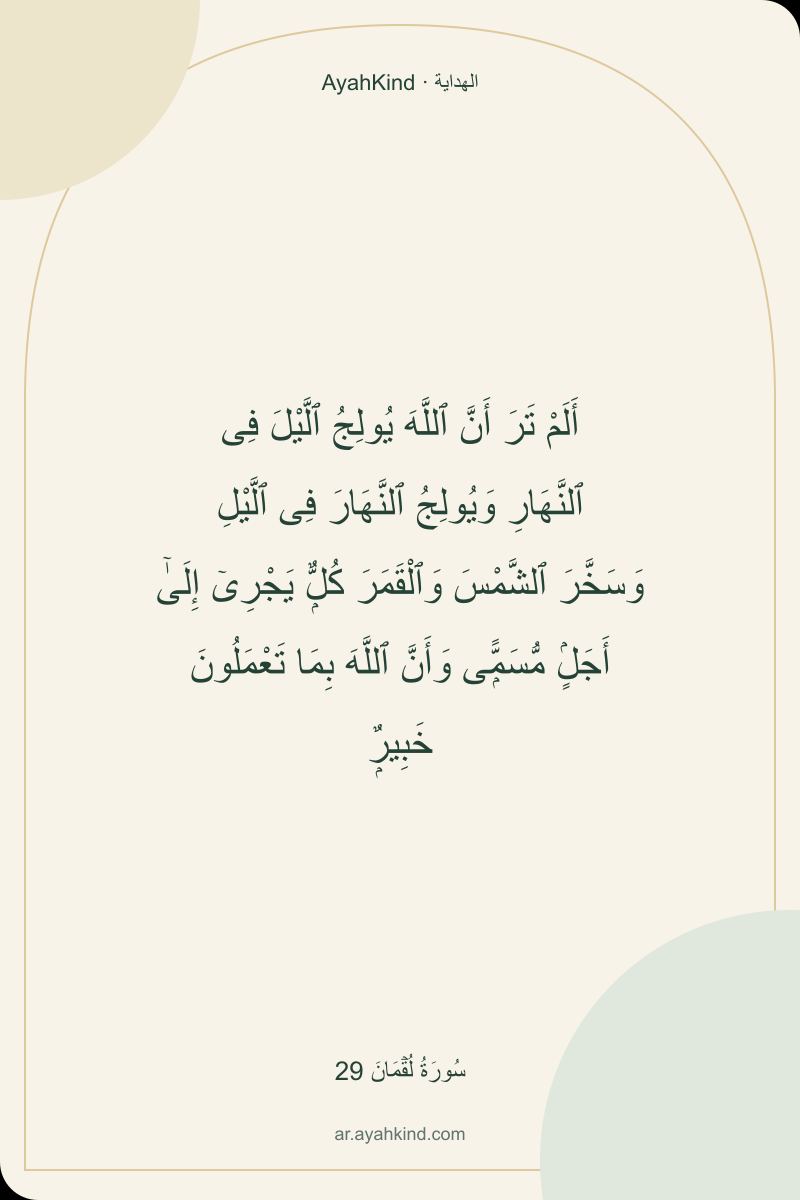 AyahKind · الهداية
أَلَمْ تَرَ أَنَّ ٱللَّهَ يُولِجُ ٱلَّيْلَ فِى
ٱلنَّهَارِ وَيُولِجُ ٱلنَّهَارَ فِى ٱلَّيْلِ
وَسَخَّرَ ٱلشَّمْسَ وَٱلْقَمَرَ كُلٌّۭ يَجْرِىٓ إِلَىٰٓ
أَجَلٍۢ مُّسَمًّۭى وَأَنَّ ٱللَّهَ بِمَا تَعْمَلُونَ
خَبِيرٌۭ
سُورَةُ لُقۡمَانَ 29
ar.ayahkind.com